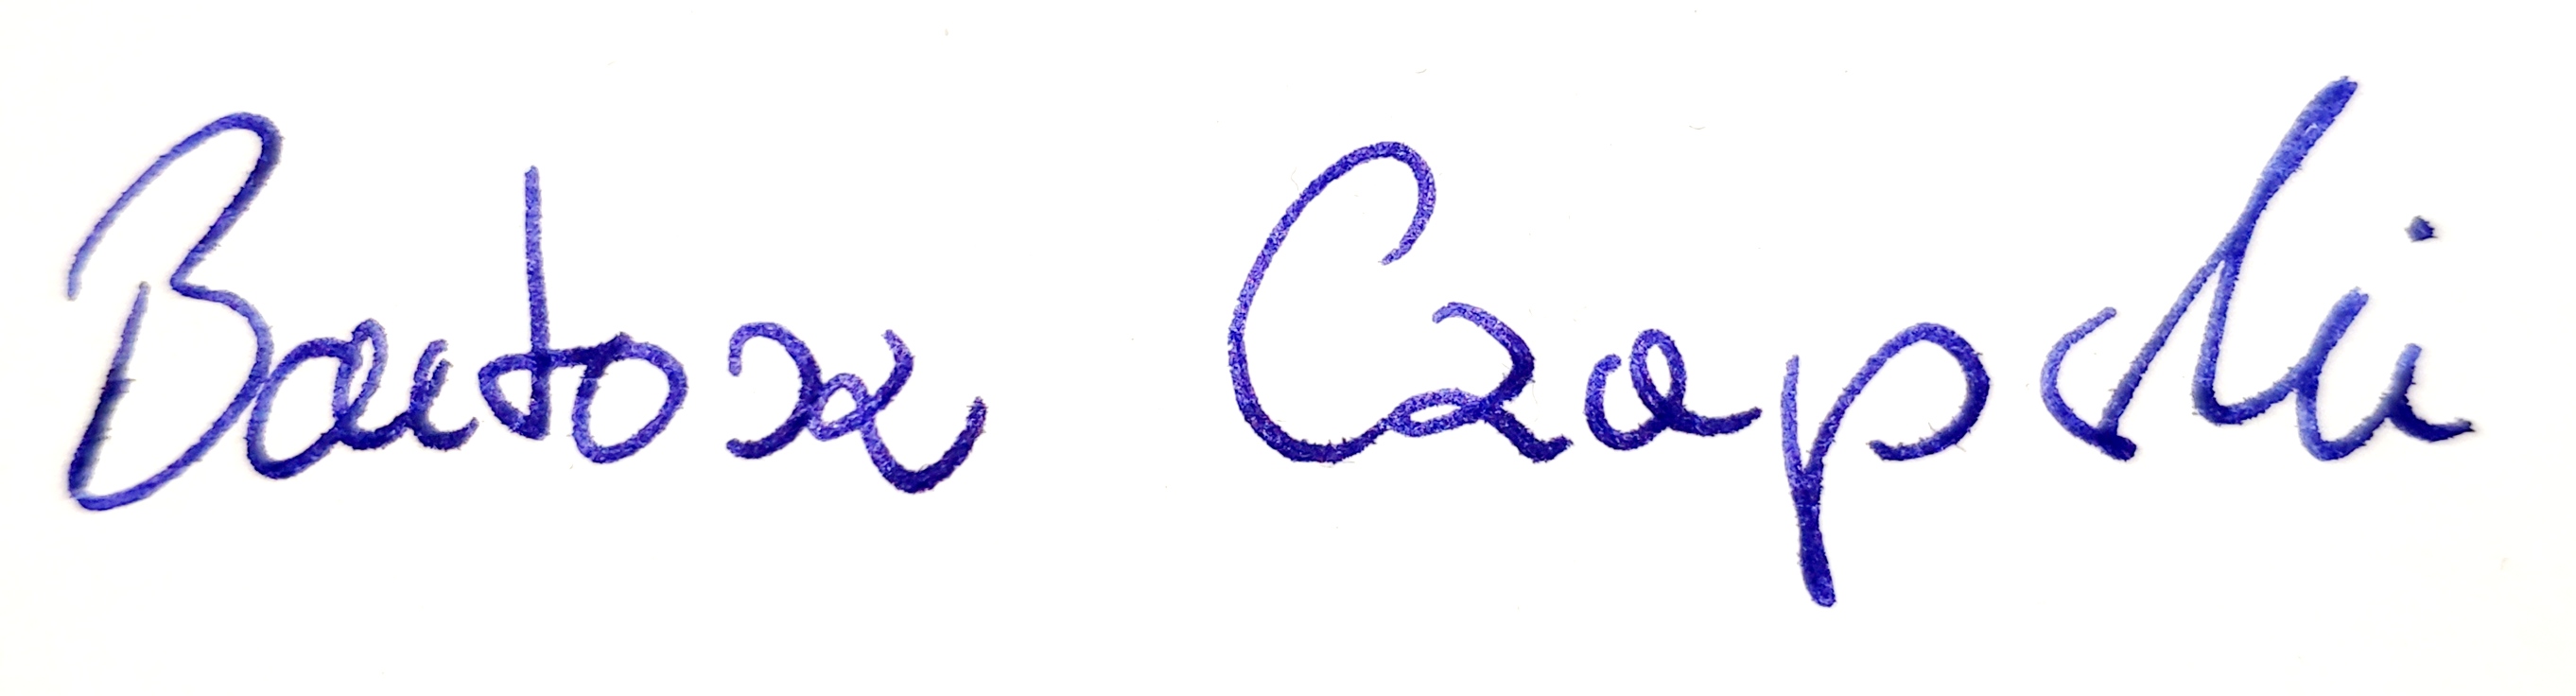 Bartosz Czapski